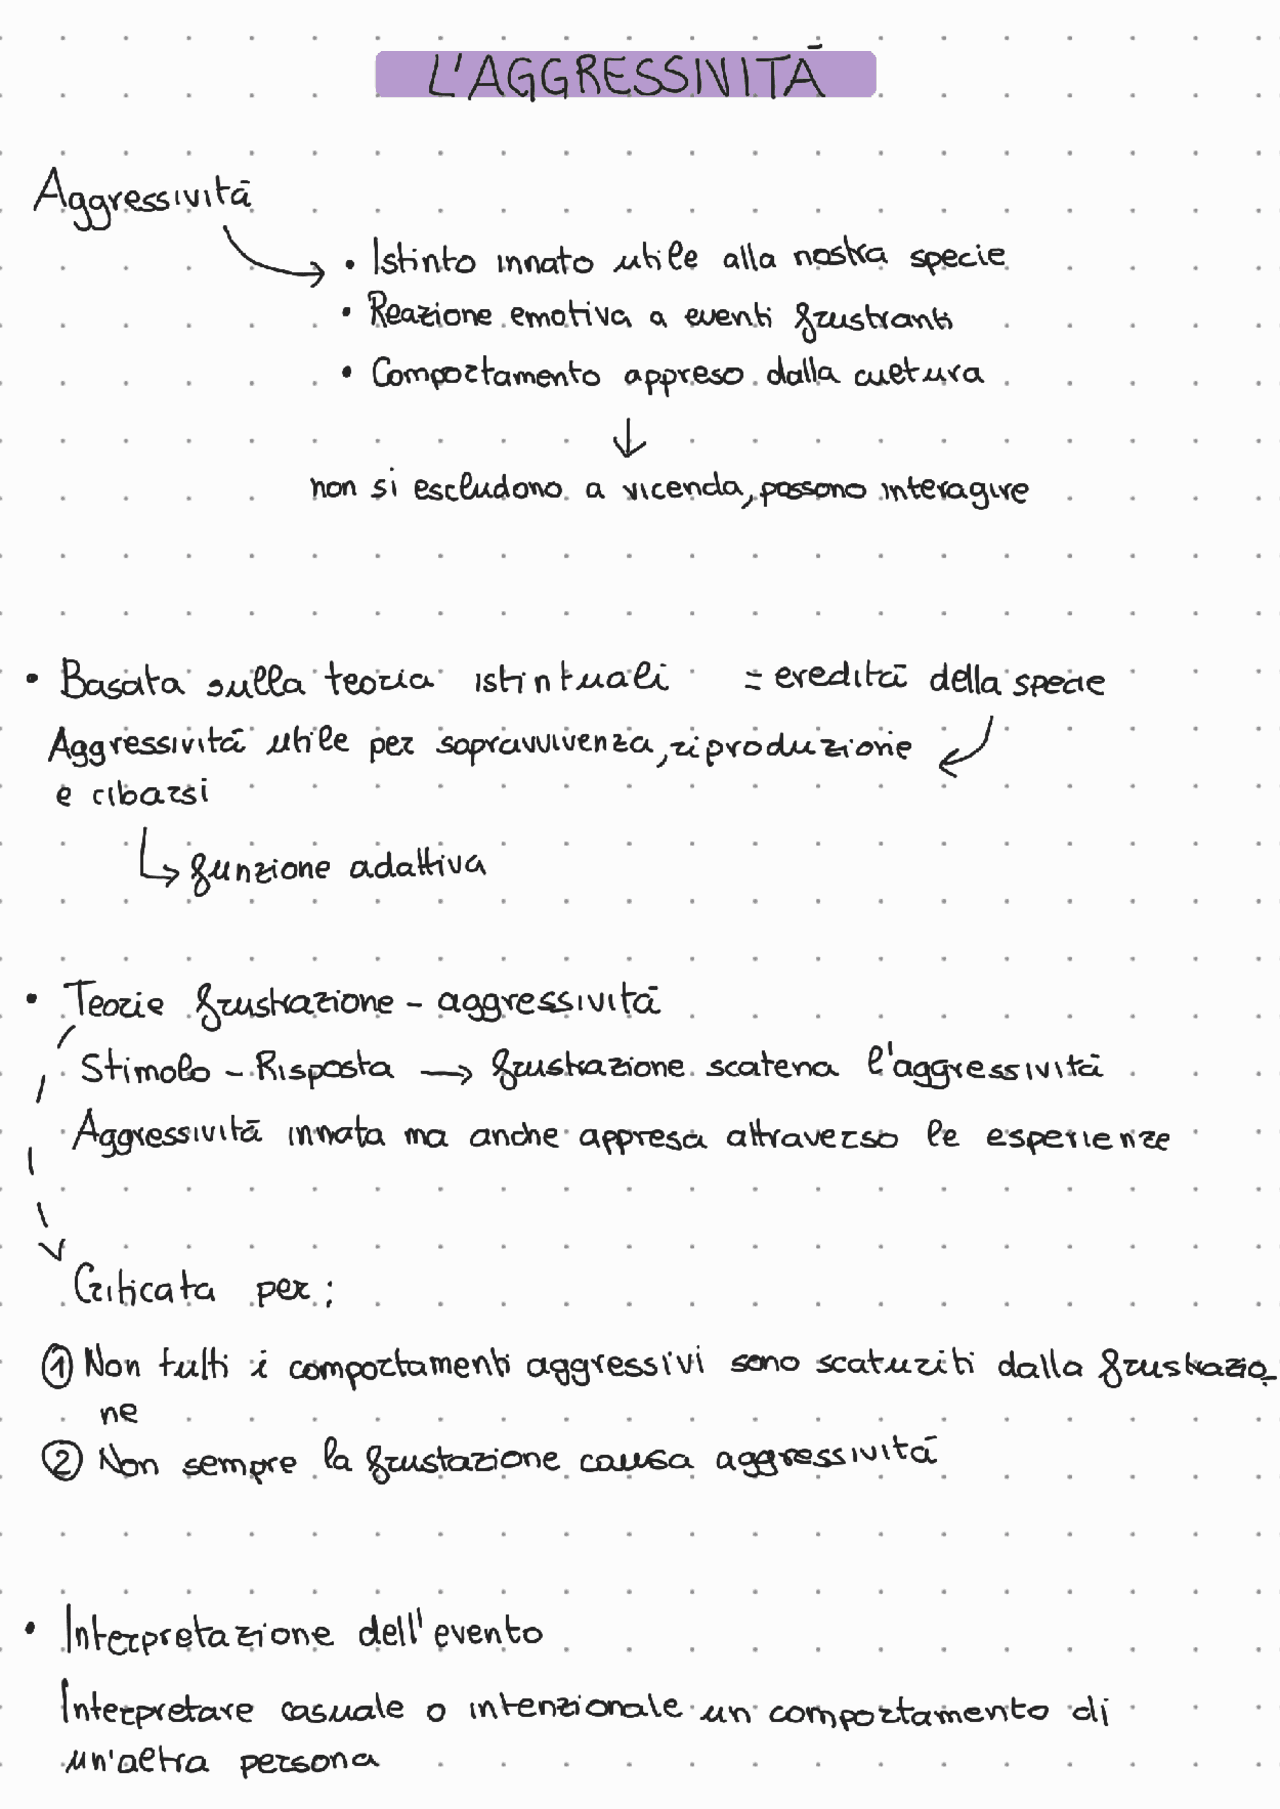 L'AGGRESSIVITÀ
Aggressività
• Istinto innato utile alla nostra specie
• Reazione emotiva a eventi frustranti
• Comportamento appreso dalla cultura
↓
non si escludono a vicenda, possono interagire
• Basata sulla teoria istintuali = eredità della specie
Aggressività utile per sopravvivenza, riproduzione
e cibarsi
↳ funzione adattiva
• Teorie frustrazione - aggressività
Stimolo - Risposta → frustrazione scatena l'aggressività
Aggressività innata ma anche appresa attraverso le esperienze
Criticata per:
① Non tutti i comportamenti aggressivi sono scaturiti dalla frustrazio-
ne
② Non sempre la frustazione causa aggressività
• Interpretazione dell'evento
Interpretare casuale o intenzionale un comportamento di
un'altra persona